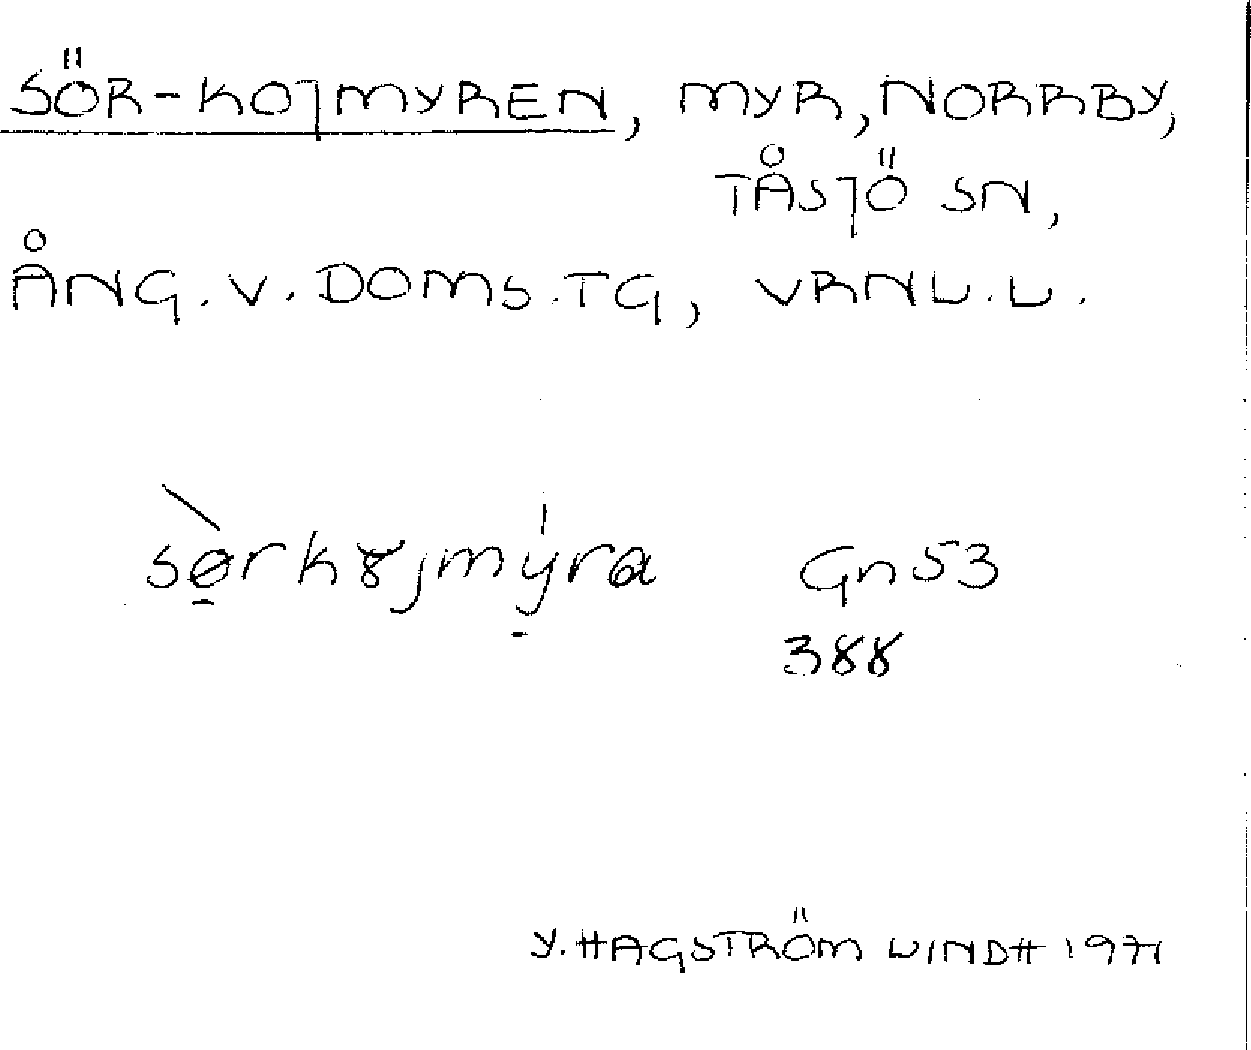 SÖR-KOJMYREN, MYR, NORRBY,
TÅSJÖ SN,
ÅNG. V. DOMS. TG, VRNL. L.
Gn 53
388
Y. HAGSTRÖM LINDH 1971